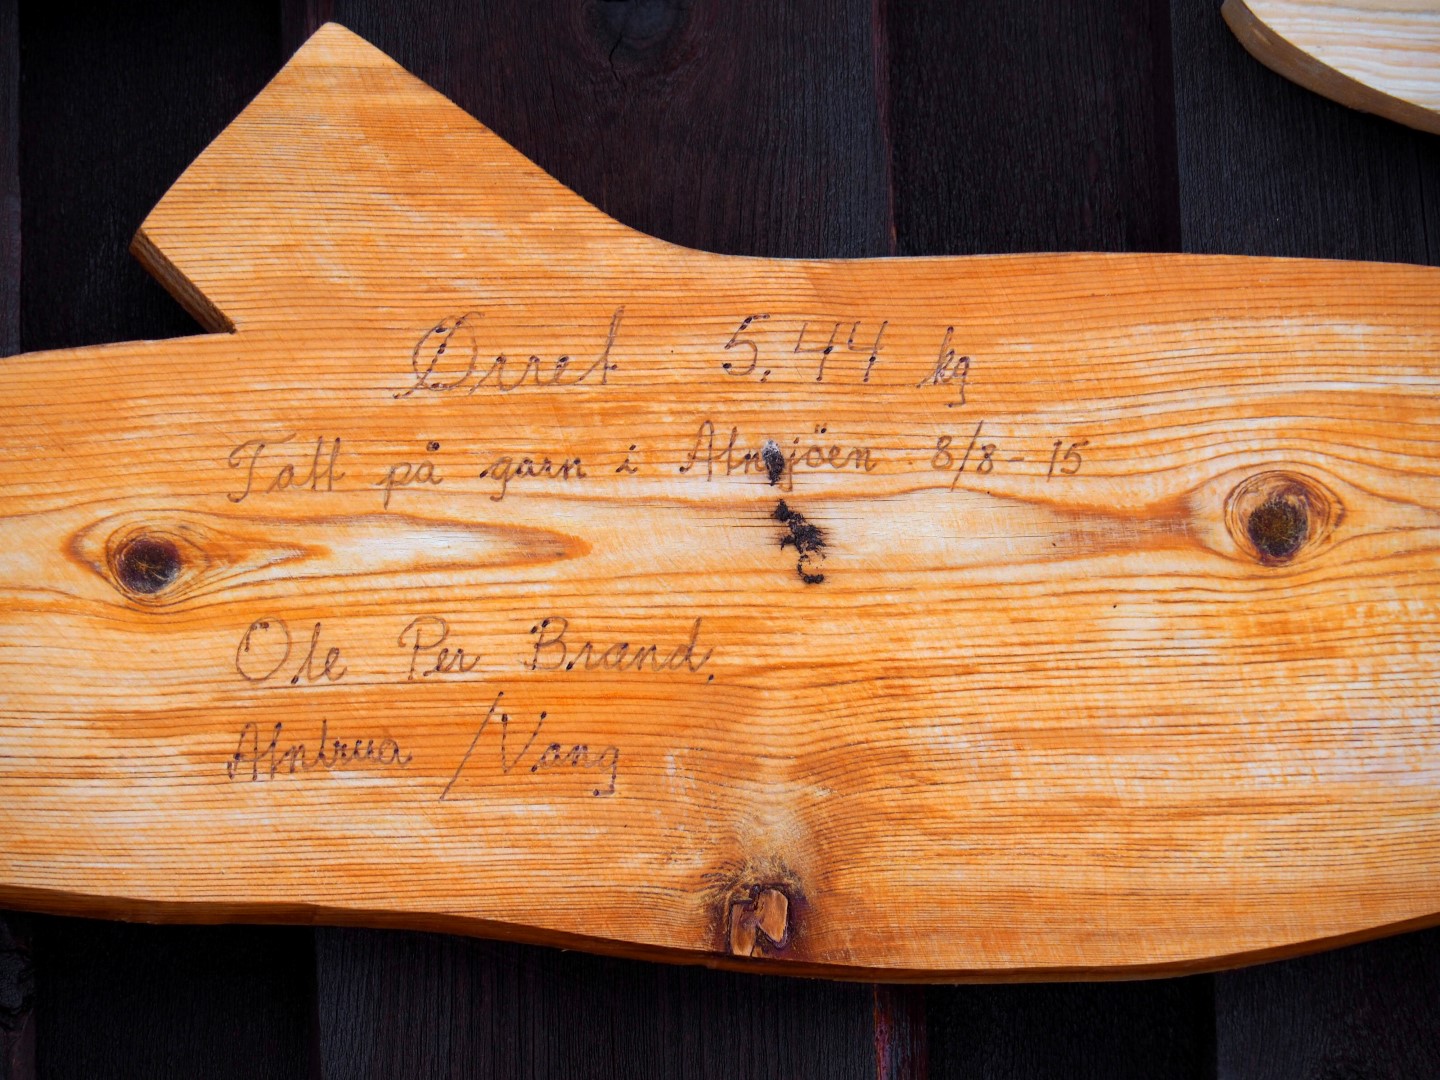 Ørret 5,44 kg
Tatt på garn i Atnsjöen 8/8-15
Ole Per Brand,
Atnbrua /Vang